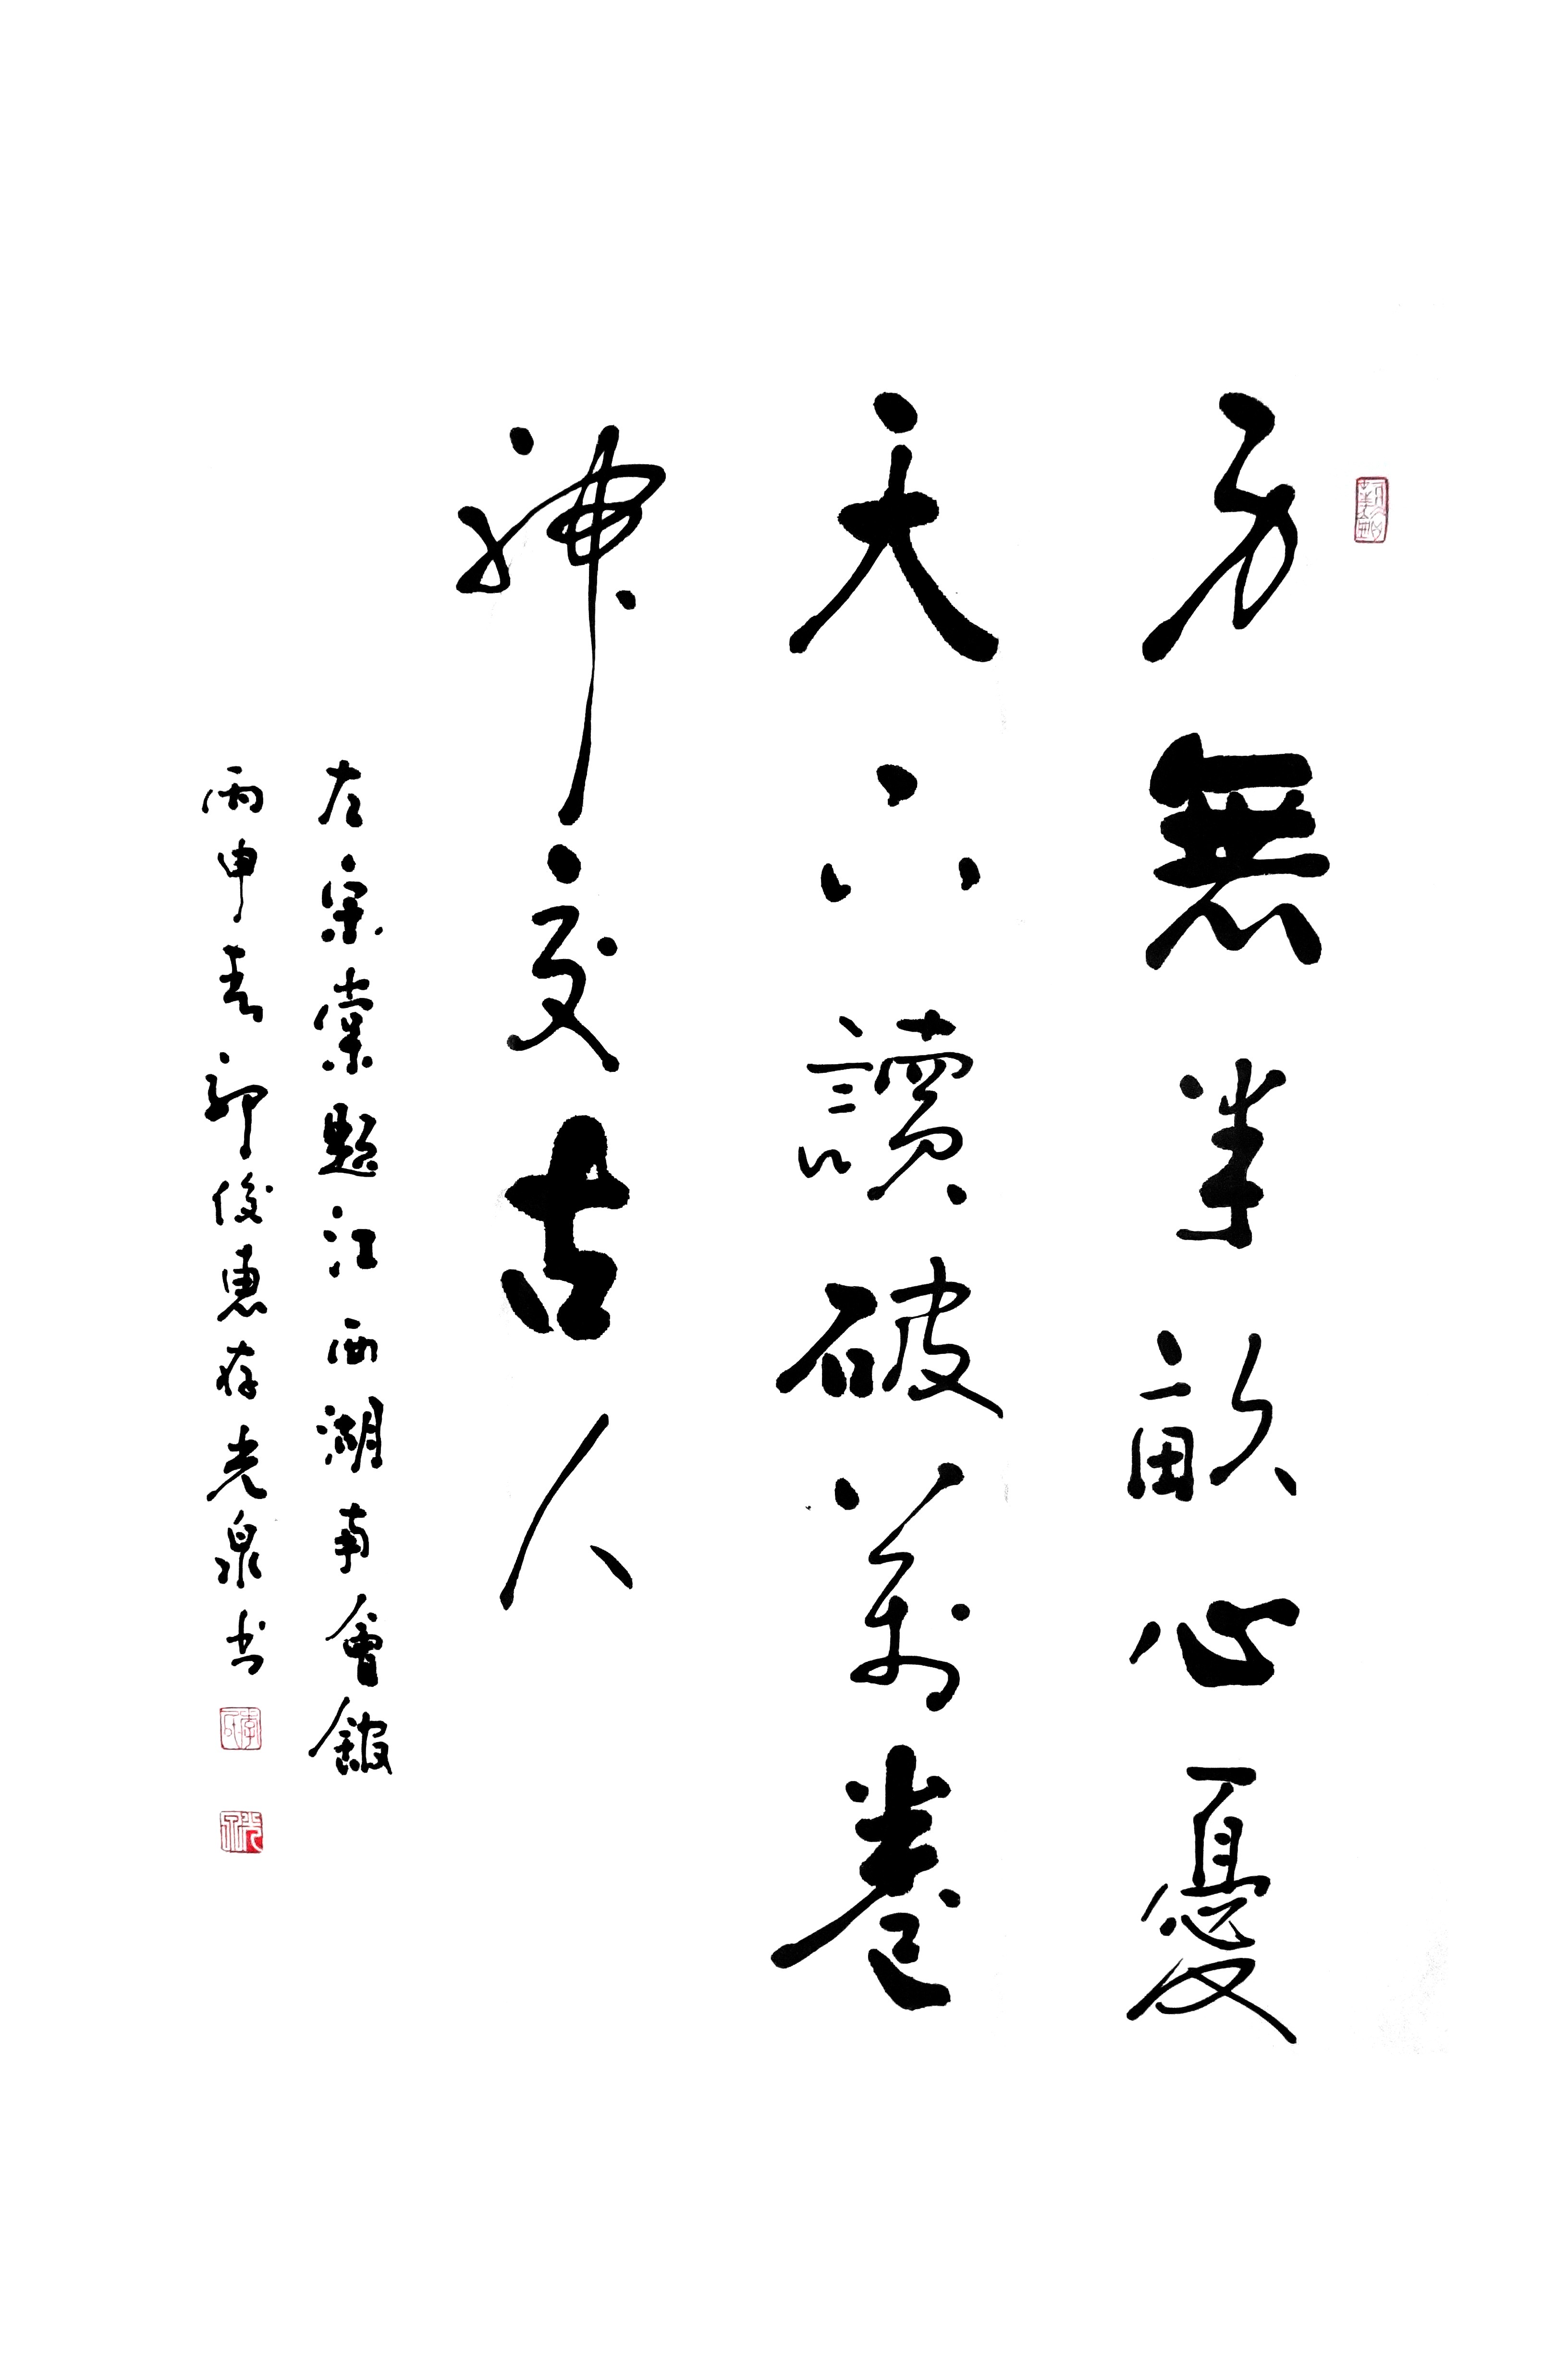 身無半畝心憂
天下讀破萬卷
神交古人
左宗棠題江西湖南會館
丙申春郭俊惠存光泉书